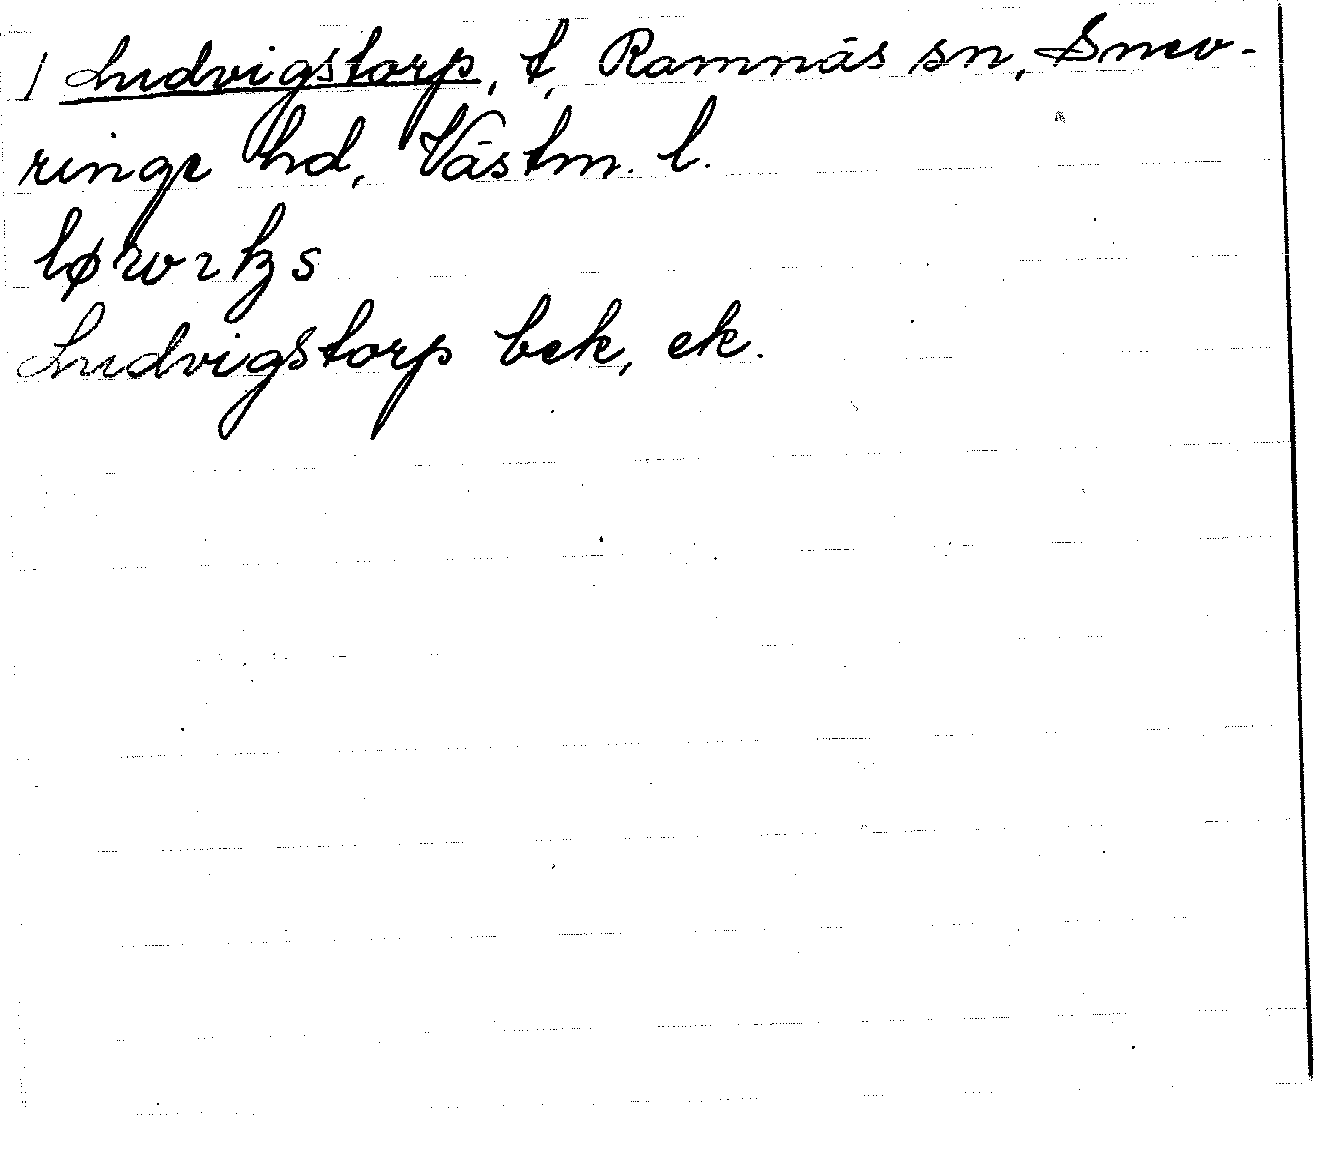 / Ludvigstorp, t, Ramnäs sn, Snev-
ringe hd, Västm. l.
Ludvigstorp bek, ek.